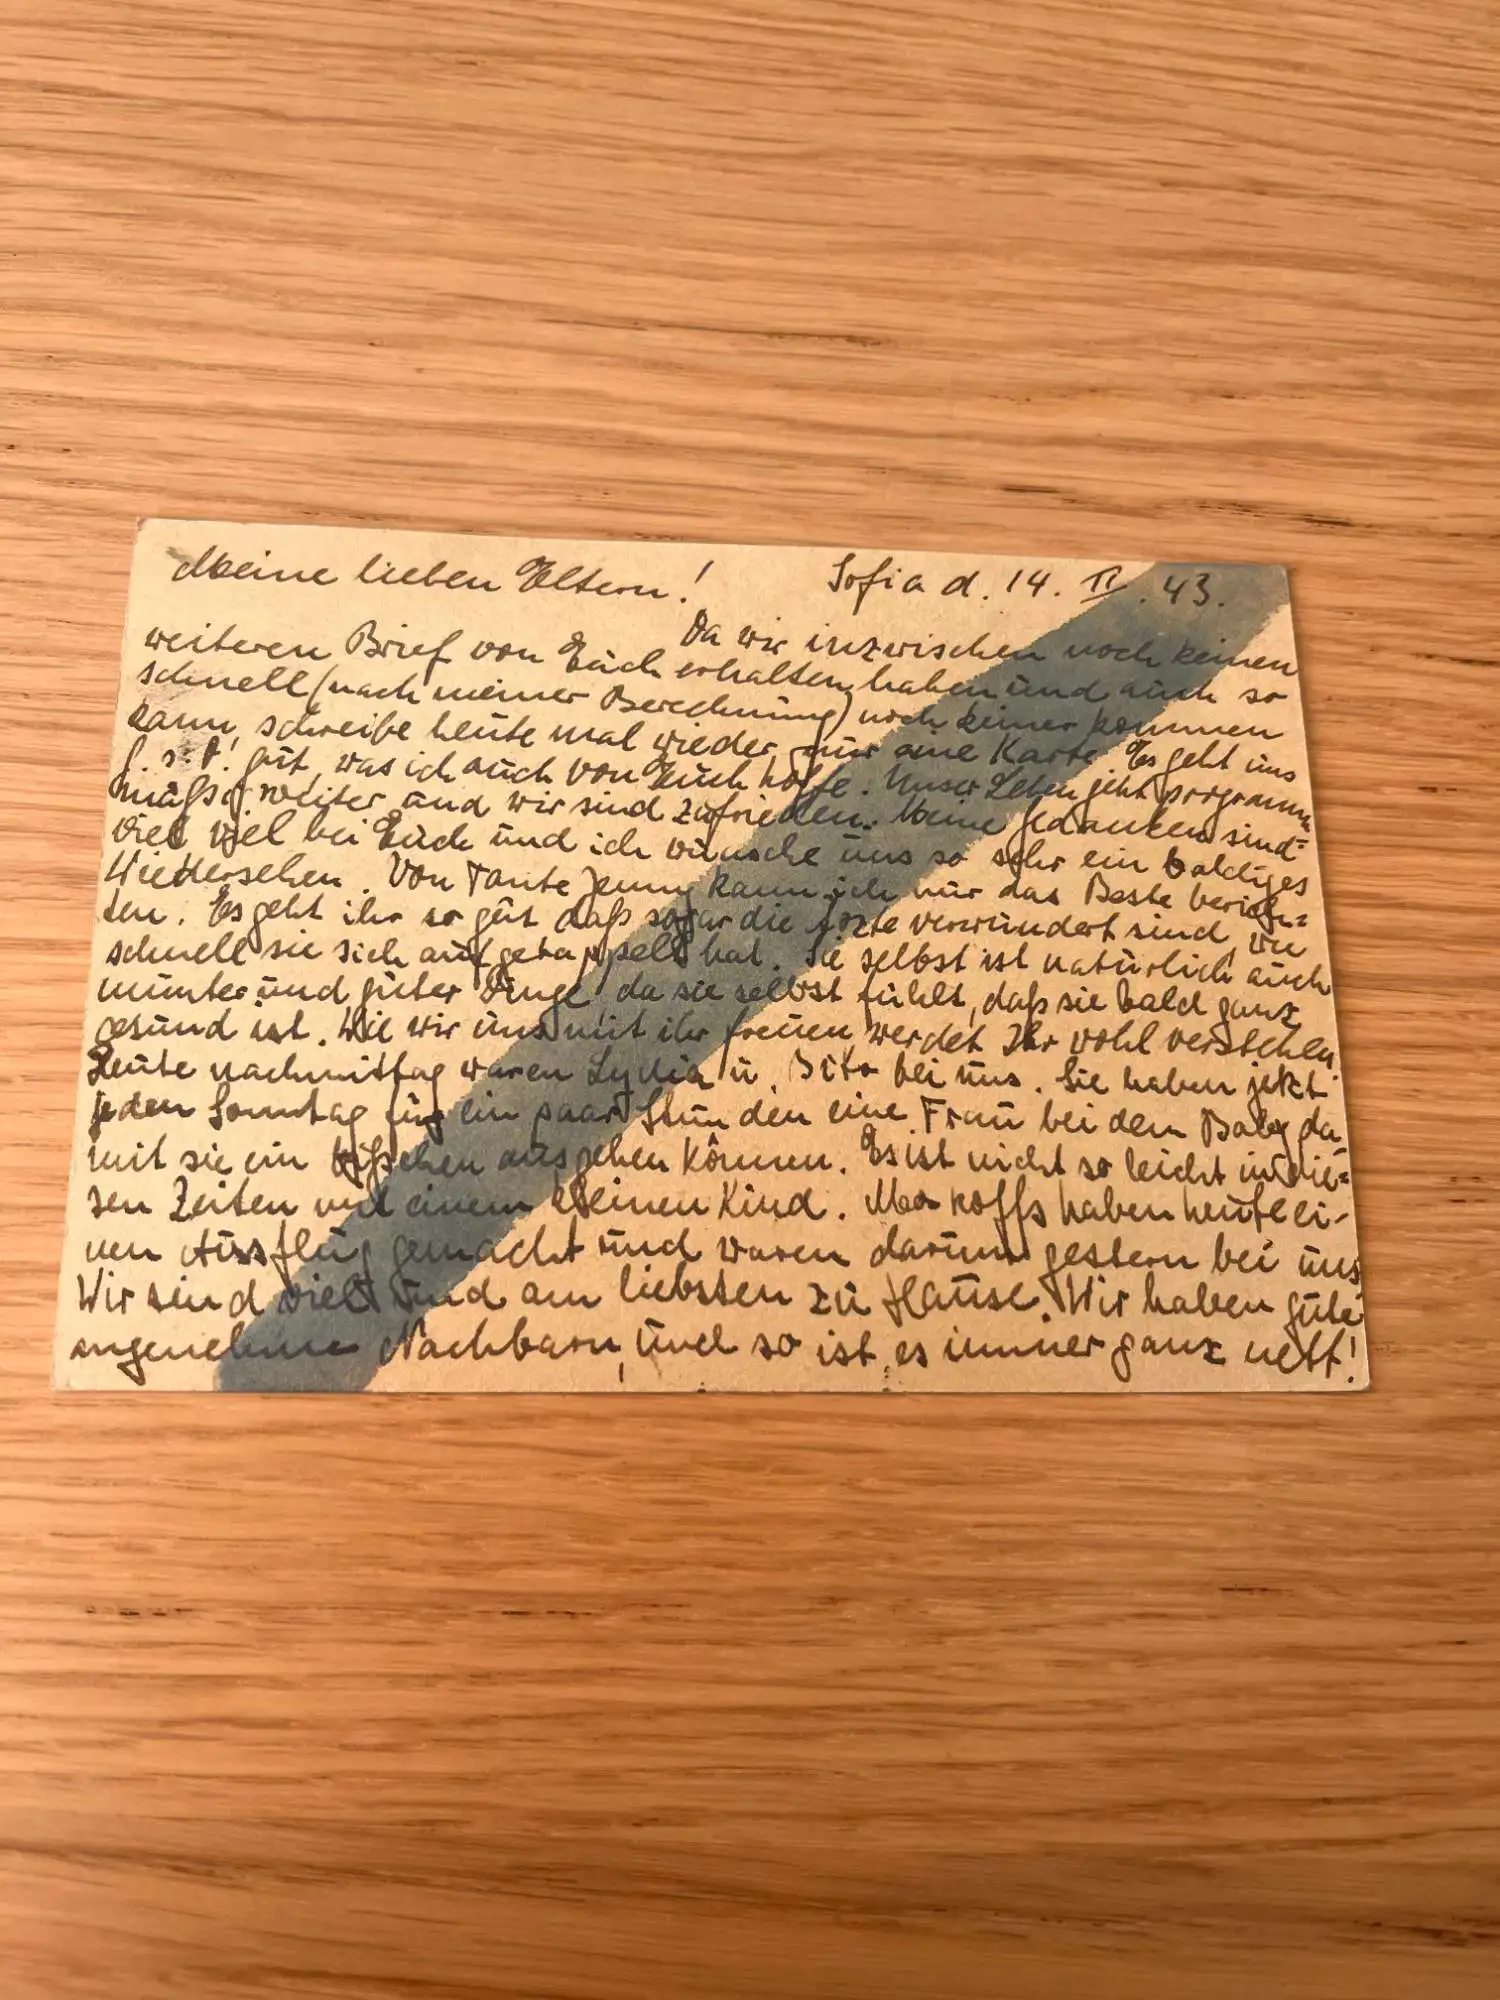 Meine lieben Eltern! Sofia d. 14. II. 43.
Da wir inzwischen noch keinen
weiteren Brief von Euch erhalten haben und auch so
schnell (nach meiner Berechnung) noch keiner kommen
kann, schreibe heute mal wieder nur eine Karte. Es geht uns
G. s. D.! gut, was ich auch von Euch hoffe. Unser Leben geht programm
mäßig weiter und wir sind zufrieden. Meine Gedanken sind
viel viel bei Euch und ich wünsche uns so sehr ein baldiges
Wiedersehen. Von Tante Jenny kann ich nur das Beste berich=
ten. Es geht ihr so gut daß sogar die Ärzte verwundert sind, wie
schnell sie sich aufgerappelt hat. Sie selbst ist natürlich auch
munter und guter Dinge da sie selbst fühlt, daß sie bald ganz
gesund ist. Wie wir uns mit ihr freuen werdet Ihr wohl verstehen.
Heute nachmittag waren Lydia u. bei uns. Sie haben jetzt
jeden Sonntag für ein paar Stunden eine Frau bei dem Baby da
mit sie ein bißchen ausgehen können. Es ist nicht so leicht in die=
sen Zeiten mit einem kleinen Kind. Markoffs haben heute ei-
nen Ausflug gemacht und waren darum gestern bei uns
Wir sind viel und am liebsten zu Hause. Wir haben gute
angenehme Nachbarn, und so ist es immer ganz nett!